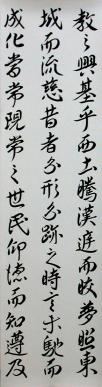 教之興基乎西土騰漢庭而皎夢照東
域而流慈昔者分形分跡之時言未馳而
成化當常現常之世民仰德而知遵及